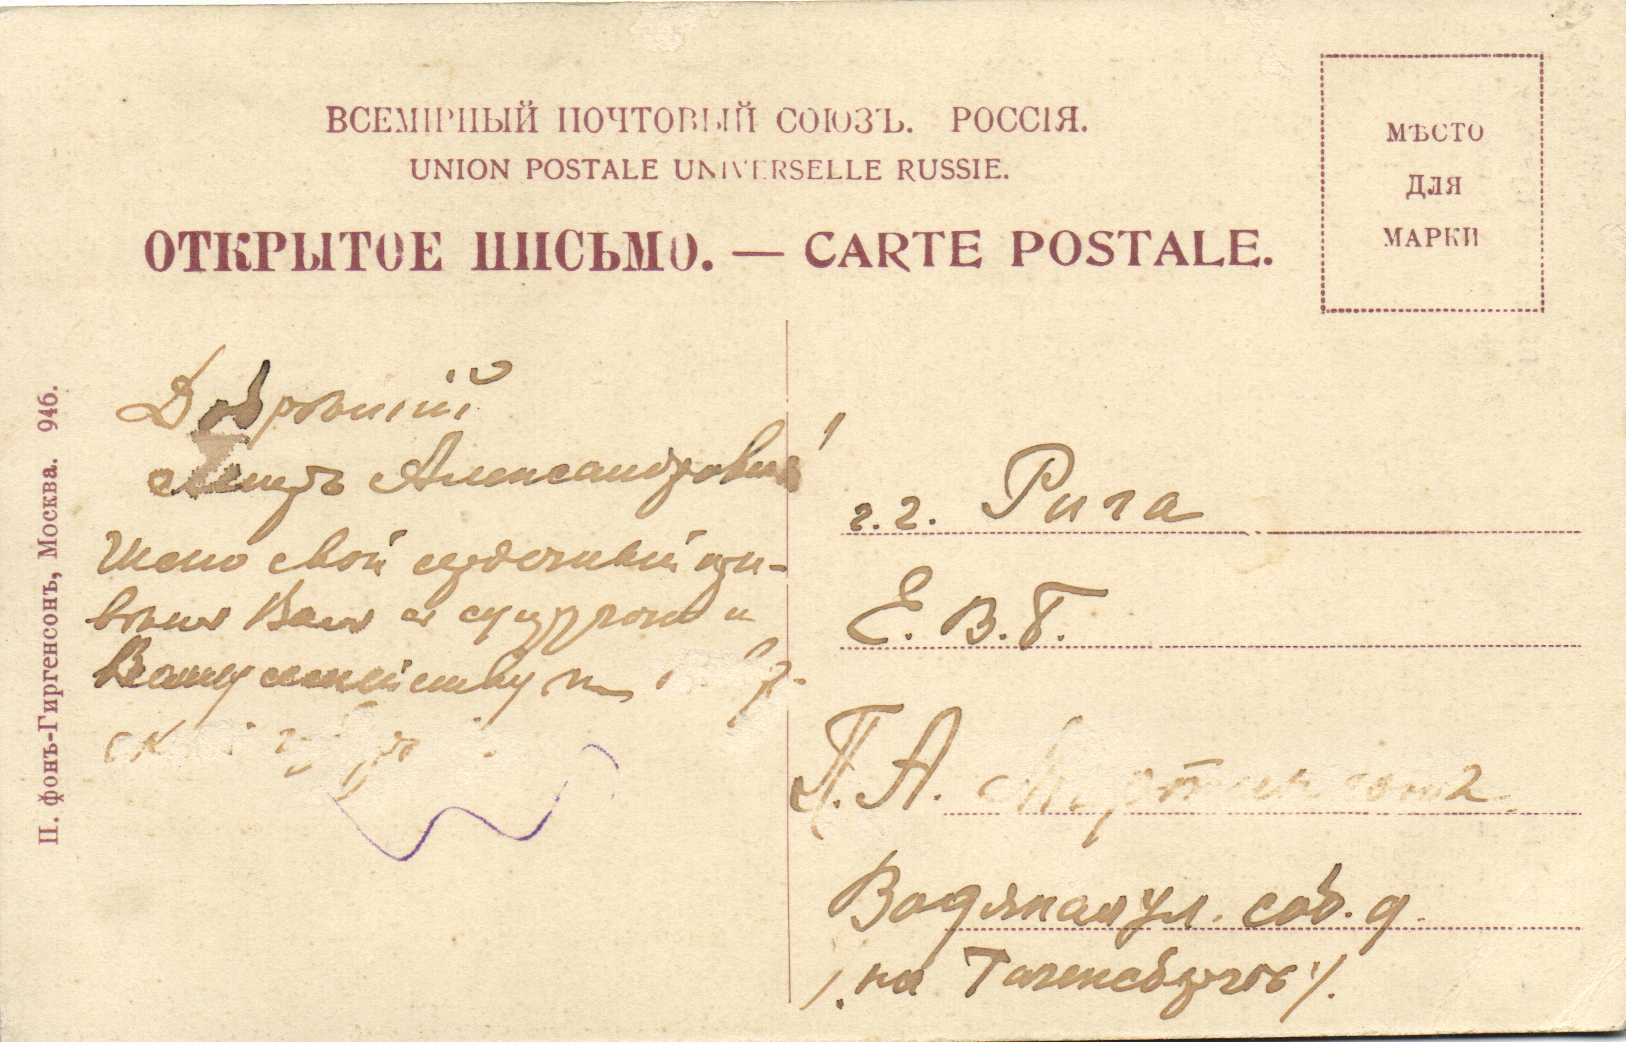 ВСЕМІРНЫЙ ПОЧТОВЫЙ СОЮЗЪ. РОССІЯ.
UNION POSTALE UNIVERSELLE RUSSIE.
ОТКРЫТОЕ ПИСЬМО. — CARTE POSTALE.
МѢСТО
ДЛЯ
МАРКИ
П. фонъ-Гиргенсонъ, Москва. 946.
Петръ Александровичъ!
Шлю свой сердечный при-
Вамъ съ супругою и
Вашему семейству
г. г. Рига
Е. В. Б.
П. А.
Водяная ул. соб. д.
/. на Тагенсбергѣ ./.